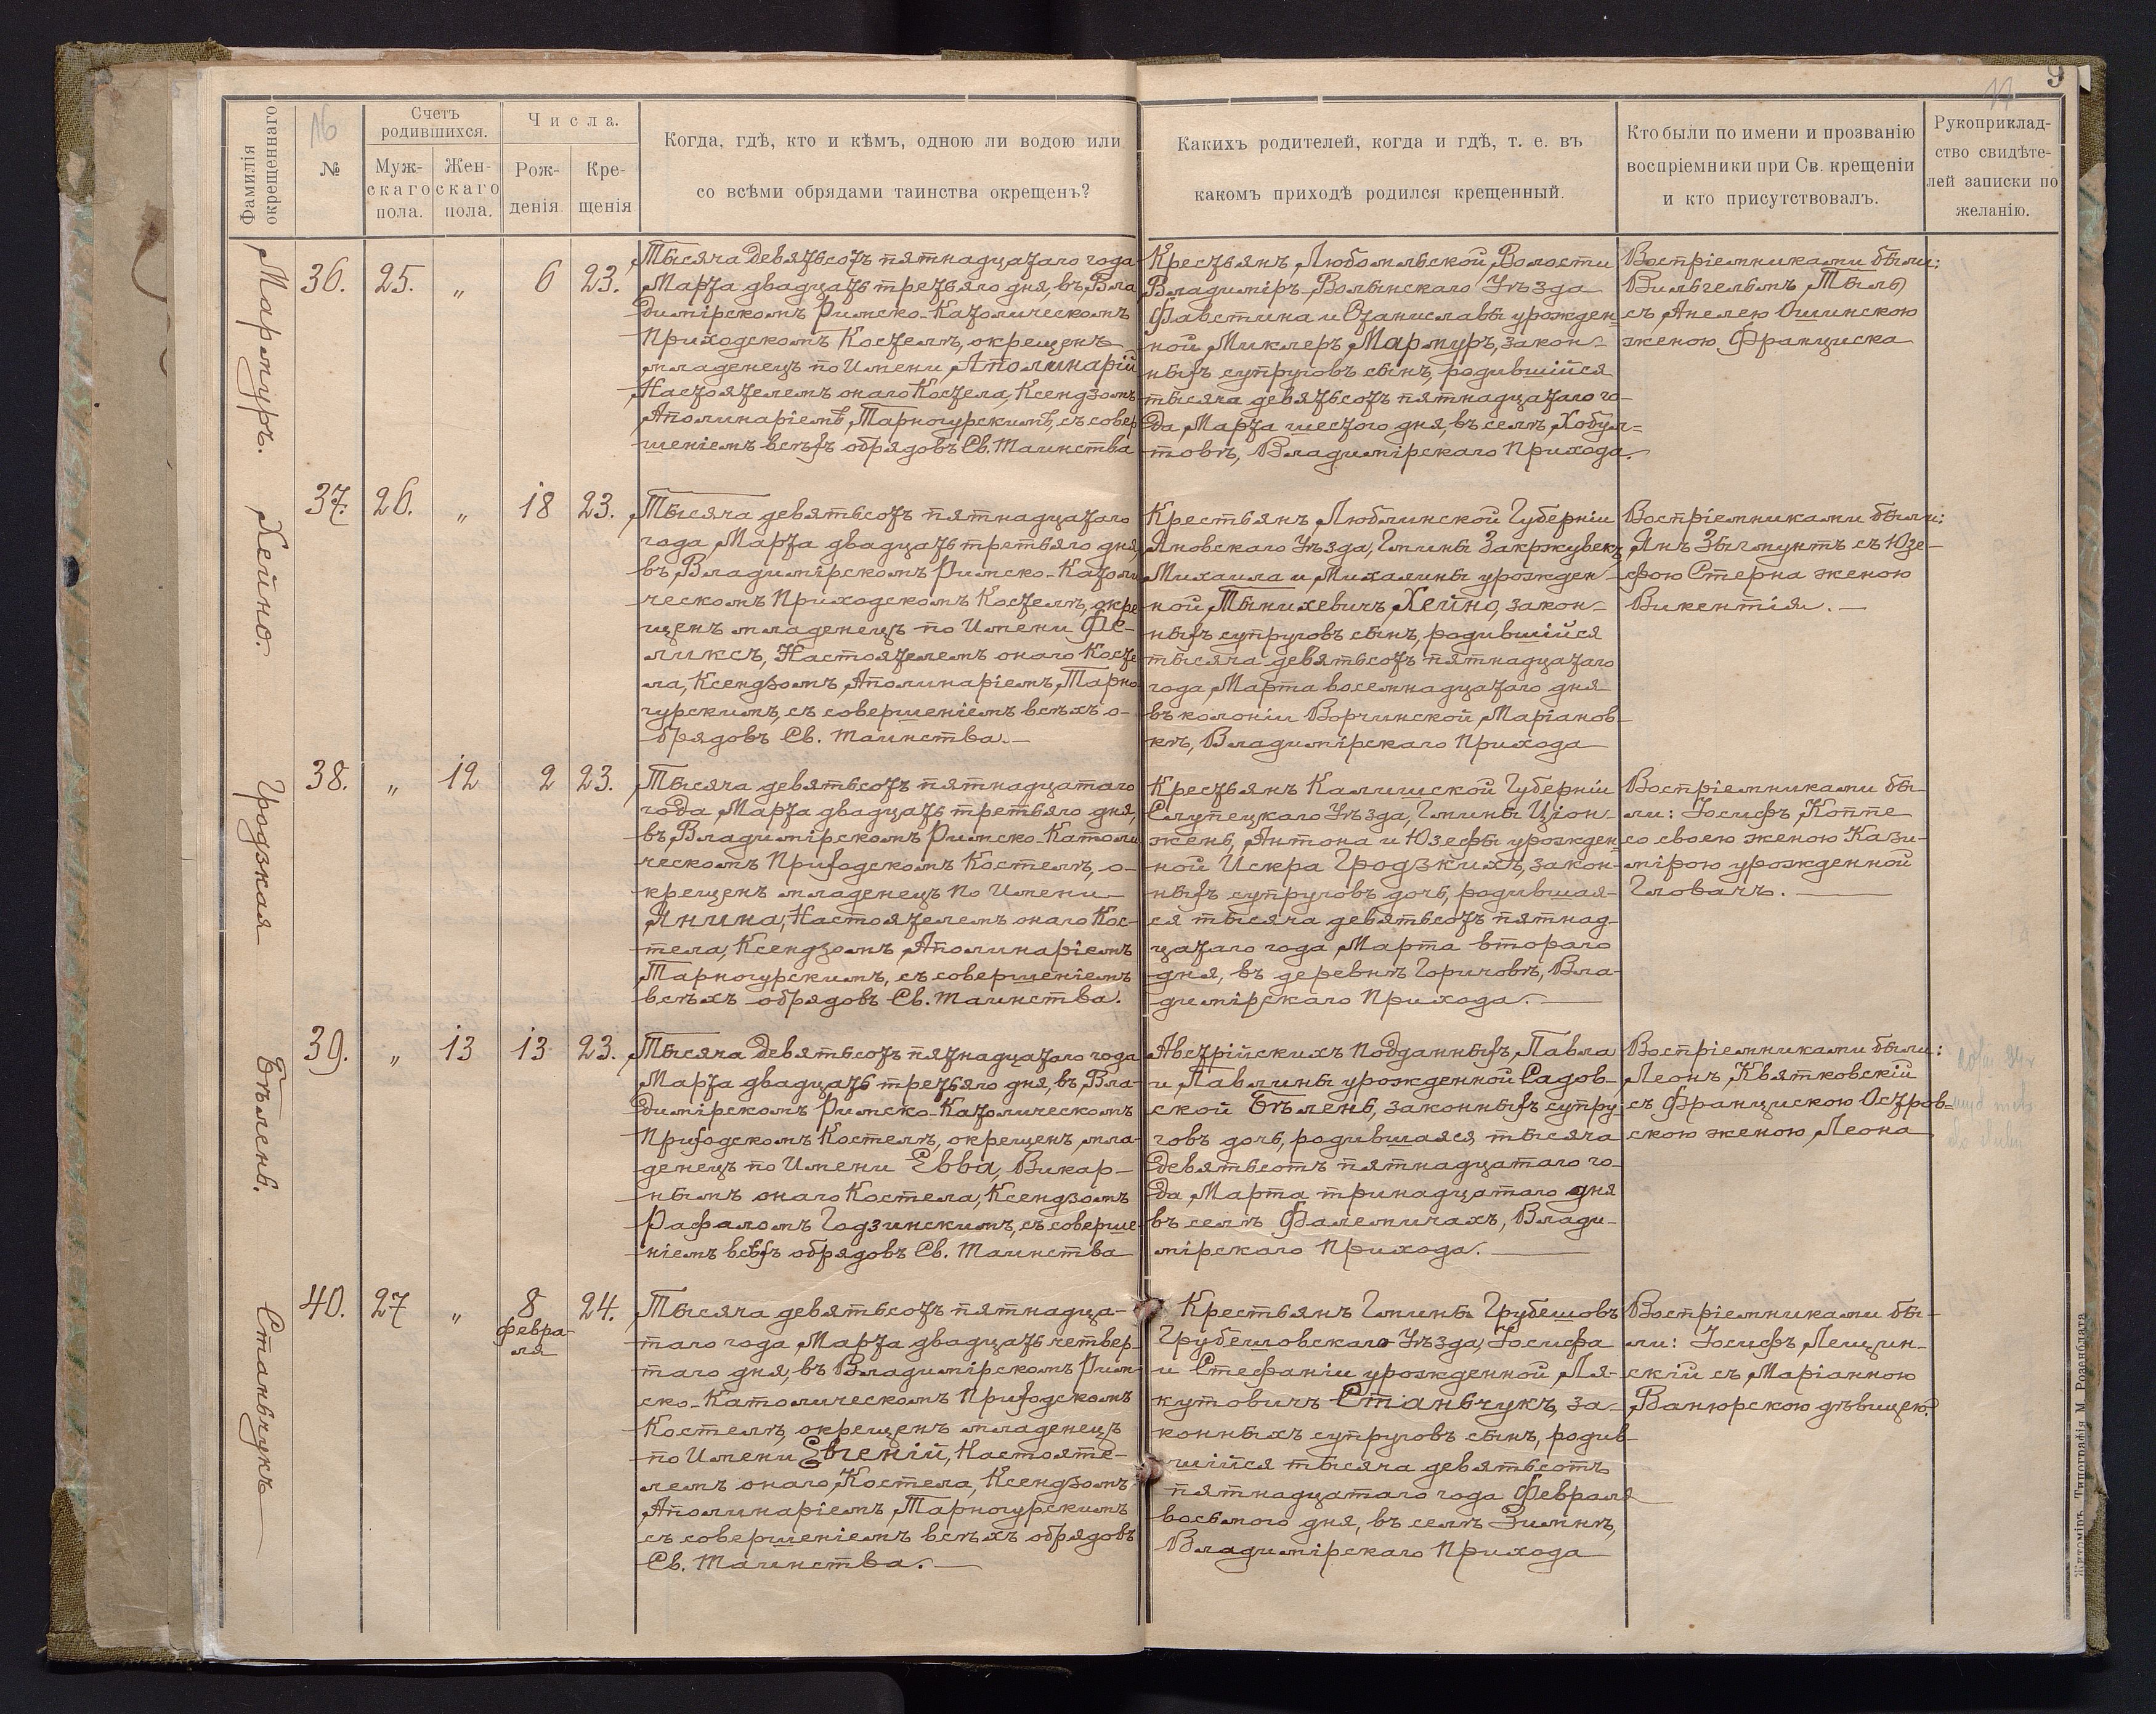 9
16
Фамилія
окрещеннаго
№
Счетъ
родившихся.
Муж-
скаго
пола.
Жен-
скаго
пола.
Числа.
Рож-
денія
Кре-
щенія
Когда, гдѣ, кто и кѣмъ, одною ли водою или
со всѣми обрядами таинства окрещенъ?
Какихъ родителей, когда и гдѣ, т. е. въ
какомъ приходѣ родился крещенный.
Кто были по имени и прозванію
воспріемники при Св. крещеніи
и кто присутствовалъ.
Рукоприклад-
ство свидѣте-
лей записки по
желанію.
Мармуръ.
36. 25. „ 6 23.
Тысяча девятьсотъ пятнадцатаго года
Марта двадцать третьяго дня, въ Вла
димірскомъ Римско-Католическомъ
Приходскомъ Костелѣ, окрещенъ
младенецъ по Имени Аполинарій
Настоятелемъ онаго Костела, Ксендзомъ
Аполинаріемъ Тарногурскимъ, съ совер
шеніемъ всѣхъ обрядовъ Св. Таинства
Крестьянъ Любомльской Волости
Владиміръ Волынскаго Уѣзда
Фавстина и Станиславы урожден=
ной Миклеръ Мармуръ, закон-
ныхъ супруговъ сынъ, родившійся
тысяча девятьсотъ пятнадцатаго го-
да Марта шестого дня, въ селѣ Хобул=
товѣ, Владимірскаго Прихода.
Воспріемниками были:
Вильгельмъ Тыль
съ Анелею Ошинскою
женою Франциска
Хейно.
37. 26. „ 18 23.
Тысяча девятьсотъ пятнадцатаго
года Марта двадцать третьяго дня,
въ Владимірскомъ Римско-Катол​и
ческомъ Приходскомъ Костелѣ, окре
щенъ младенецъ по Имени Фе-
ликсъ, Настоятелемъ онаго Косте
ла, Ксендзомъ Аполинаріемъ Тарно
гурскимъ, съ совершеніемъ всѣхъ о-
брядовъ Св. таинства.—
Крестьянъ Люблинской Губерніи
Яновскаго Уѣзда, Гмины Закржувекъ
Михаила и Михалины урожден-
ной Тынихевичъ Хейно, закон-
ныхъ супруговъ сынъ, родившійся
тысяча девятьсотъ пятнадцатаго
года Марта восемнадцатаго дня
въ колоніи Ворчинской Маріанов-
кѣ, Владимірскаго Прихода
Воспріемниками были:
Янъ Зыгмунтъ съ Юзе-
фою Стерна женою
Викентія.—
Гродзкая
38. „ 12 2 23.
Тысяча девятьсотъ пятнадцатаго
года Марта двадцать третьяго дня,
въ Владимірскомъ Римско-Католи
ческомъ Приходскомъ Костелѣ, о-
крещенъ младенецъ по Имени
Янина, Настоятелемъ онаго Кос-
тела, Ксендзомъ Аполинаріемъ
Тарногурскимъ, съ совершеніемъ
всѣхъ обрядовъ Св. таинства.
Крестьянъ Калишской Губерніи
Слупецкаго Уѣзда, Гмины Ціон-
жень, Антона и Юзефы урожден=
ной Искра Гродзкихъ, закон-
ныхъ супруговъ дочь, родившая-
ся тысяча девятьсотъ пятнад-
цатаго года Марта второго
дня, въ деревнѣ Горичовѣ, Вла-
димірскаго Прихода.—
Воспріемниками бы-
ли: Іосифъ Коппе
со своею женою Кази-
мірою урожденной
Гловачъ.—
Бѣлень.
39. „ 13 13 23.
Тысяча девятьсотъ пятнадцатаго года
Марта двадцать третьяго дня, въ Вла-
димірскомъ Римско-Католическомъ
Приходскомъ Костелѣ, окрещенъ мла-
денецъ по Имени Евва, Викар-
нымъ онаго Костела, Ксендзомъ
Рафаломъ Годзинскимъ, съ соверше-
ніемъ всѣхъ обрядовъ Св. Таинства
Австрійскихъ подданныхъ Павла
и Павлины урожденной Садов-
ской Бѣлень, законныхъ супру-
говъ дочь, родившаяся тысяча
девятьсотъ пятнадцатаго го-
да Марта тринадцатаго дня
въ селѣ Фалемичахъ, Влади-
мірскаго Прихода.—
Воспріемниками были:
Леонъ Квятковскій
съ Францискою Остров=
скою женою Леона
Станьчукъ
40. 27 „ 8
февра-
ля
24.
Тысяча девятьсотъ пятнадца-
таго года Марта двадцать четвер-
таго дня, въ Владимірскомъ Рим-
ско-Католическомъ Приходскомъ
Костелѣ, окрещенъ младенецъ
по Имени Евгеній, Настояте-
лемъ онаго Костела, Ксендзомъ
Аполинаріемъ Тарногурскимъ
съ совершеніемъ всѣхъ обрядовъ
Св. Таинства.—
Крестьянъ Гмины Грубешовъ
Грубешовскаго Уѣзда, Іосифа
и Стефаніи урожденной Ля-
кутовичъ Станьчукъ, за-
конныхъ супруговъ сынъ, родив-
шійся тысяча девятьсотъ
пятнадцатаго года Февраля
восьмого дня, въ селѣ Зимнѣ,
Владимірскаго Прихода
Воспріемниками бы-
ли: Іосифъ Лещин-
скій съ Маріанною
Ванюрскою дѣвицею.
Житоміръ. Типографія М. Розенблата